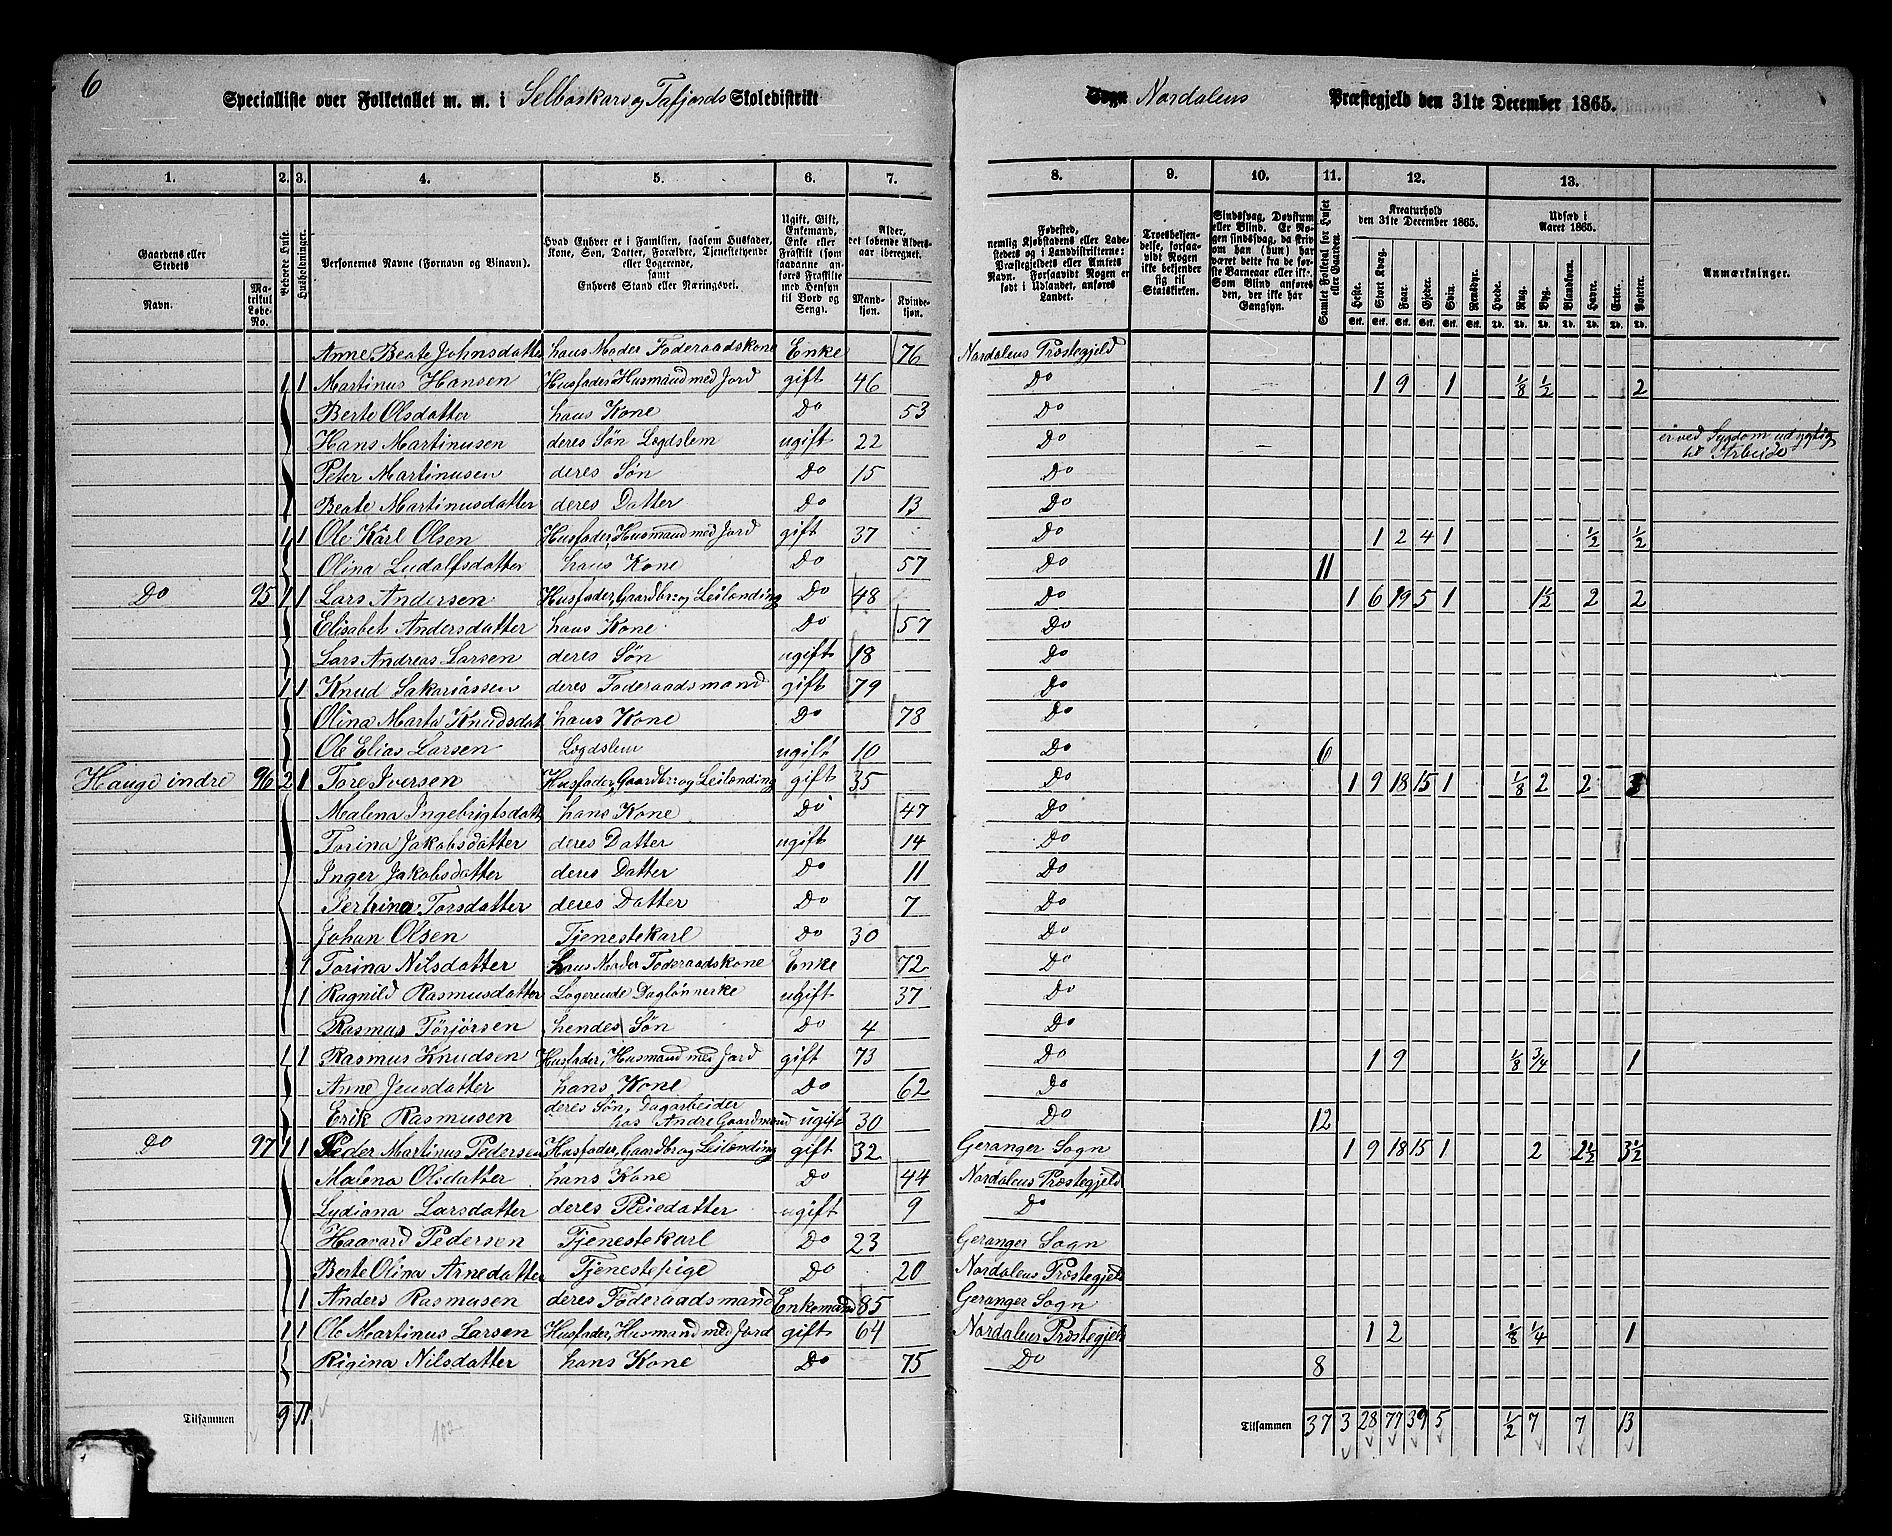 6
Specialliste over Folketallet m. m. i Selboskars og Tafjords Skoledistrikt
Sogn Nordalens Præstegjeld den 31te December 1865.
1. 2. 3. 4. 5. 6. 7. 8. 9. 10. 11. 12. 13.
Gaardens eller Stedets
Navn.
Matrikul Løbe-No.
Beboede Huse.
Husholdninger.
Personernes Navne (Fornavn og Binavn).
Hvad Enhver er i Familien, saasom Husfader, Kone, Søn, Datter, Forældre, Tjenestetyende eller Logerende, samt Enhvers Stand eller Næringsvei.
Ugift, Gift, Enkemand, Enke eller Fraskilt (som saadanne anføres Fraskilte med Hensyn til Bord og Seng).
Alder, det løbende Alders-aar iberegnet.
Mandkjøn.
Kvindekjøn.
Fødested, nemlig Kjøbstadens eller Ladestedets og i Landdistrikterne: Præstegjeldets eller Amtets Navn. Forsaavidt Nogen er født i Udlandet, anføres Landet.
Troesbekjendelse, forsaavidt Nogen ikke bekjender sig til Statskirken.
Sindssvag, Døvstum eller Blind. Er Nogen sindssvag, da skriv om han (hun) har været dette fra de første Barneaar eller ikke. Som Blind anføres den, der ikke har Gangsyn.
Samlet Folketal for Huset eller Gaarden.
Kreaturhold den 31te December 1865.
Heste. Stort Kvæg. Faar. Gjeder. Svin. Rensdyr.
Udsæd i Aaret 1865.
Hvede. Rug. Byg. Blandkorn. Havre. Erter. Poteter.
Anmærkninger.
Anne Beate Johnsdatter hans Moder Føderaadskone Enke 76 Nordalens Præstegjeld
1 1 Martinus Hansen Husfader, Husmand med Jord gift 46 Do 1 9 1 1/8 1/2 2
Berte Olsdatter hans Kone Do 53 Do
Hans Martinusen deres Søn Logdslem ugift 22 Do er ved Sygdom udygtig til Arbeide
Peter Martinusen deres Søn Do 15 Do
Beate Martinusdatter deres Datter Do 13 Do
1 1 Ole Karl Olsen Husfader, Husmand med Jord gift 37 Do 1 2 4 1 1/2 1/2
Olina Ludalfsdatter hans Kone Do 57 Do 11
Do 95 1 1 Lars Andersen Husfader, Gaardbr. og Leilending Do 48 Do 1 6 19 5 1 1 1/2 2 2
Elisabet Andersdatter hans Kone Do 57 Do
Lars Andreas Larsen deres Søn ugift 18 Do
1 1 Knud Sakariassen deres Føderaadsmand gift 79 Do
Olina Marta Knudsdat hans Kone Do 78 Do
Ole Elias Larsen Logdslem ugift 10 Do 6
Hauge indre 96 2 1 Tore Iversen Husfader, Gaardbr. og Leilending gift 35 Do 1 9 18 15 1 1/8 2 2 3
Malena Ingebrigtsdatt hans Kone Do 47 Do
Torina Jakobsdatter deres Datter ugift 14 Do
Inger Jakobsdatter deres Datter Do 11 Do
Pertrina Torsdatter deres Datter Do 7 Do
Johan Olsen Tjenestekarl Do 30 Do
1 Torina Nilsdatter hans Moder Føderaadskone Enke 72 Do
1 Ragnild Rasmusdatter Logerende Daglønnerke ugift 37 Do
Rasmus Torjørsen hendes Søn Do 4 Do
1 1 Rasmus Knudsen Husfader, Husmand med Jord gift 73 Do 1 9 1/8 3/4 1
Anne Jensdatter hans Kone Do 62 Do
Erik Rasmusen deres Søn, Dagarbeider hos Andre Gaardmænd ugift 30 Do 12
Do 97 1 1 Peder Martinus Pedersen Husfader, Gaardbr. og Leilending gift 32 Geranger Sogn 1 9 18 15 1 2 2 1/2 3 1/2
Malena Olsdatter hans Kone Do 44 Nordalens Præstegjeld
Lydiana Larsdatter deres Pleiedatter ugift 9 Do
Haavard Pedersen Tjenestekarl Do 23 Geranger Sogn
Berte Olina Arnedatter Tjenestepige Do 20 Nordalens Præstegjeld
1 Anders Rasmusen deres Føderaadsmand Enkemand 85 Geranger Sogn
1 1 Ole Martinus Larsen Husfader, Husmand med Jord gift 64 Nordalens Præstegjeld 1 2 1/8 1/4 1
Rigina Nilsdatter hans Kone Do 75 Do 8
Tilsammen 9 11
102
Tilsammen 37 3 28 77 39 5 1/2 7 7 13